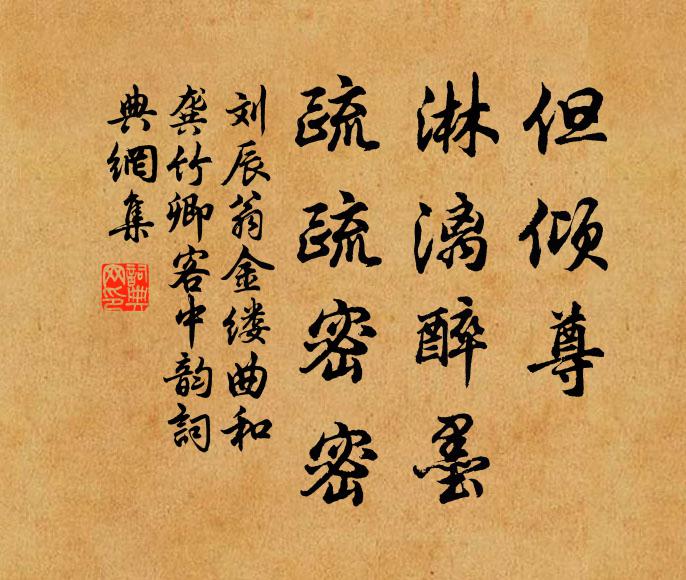 但倾尊
淋漓醉墨
疏疏密密
刘辰翁金缕曲和
龚竹卿客中韵詞
典網集
詞典网印